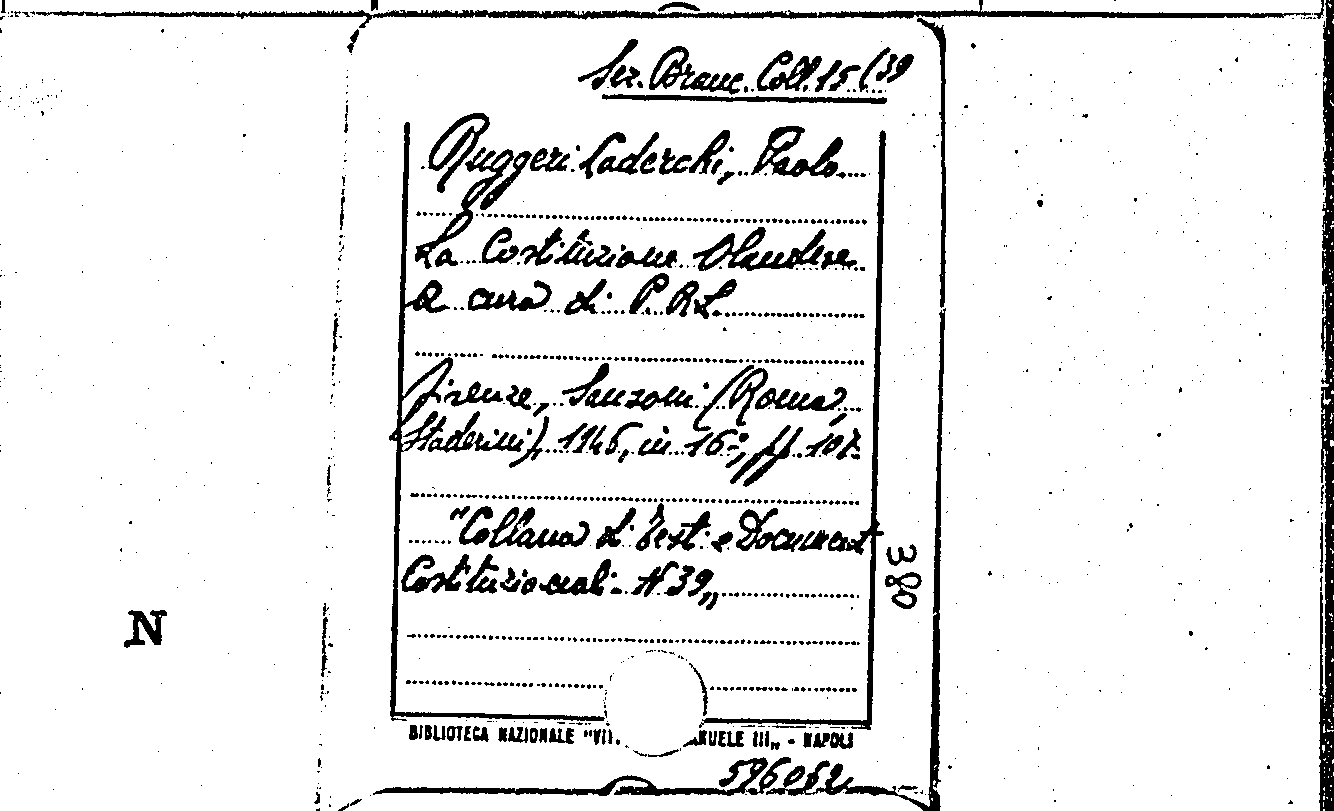 Sez. Branc. Coll. 15 (39
Ruggeri Laderchi, Paolo
La Costituzione Olandese
A cura di P. R. L.
Firenze, Sansoni (Roma,
Staderini), 1946, in 16°, pp. 107.
"Collana di Testi e Documenti
Costituzionali - N 39„
380
N
BIBLIOTECA NAZIONALE "VIT. ANUELE III„ - NAPOLI
596062